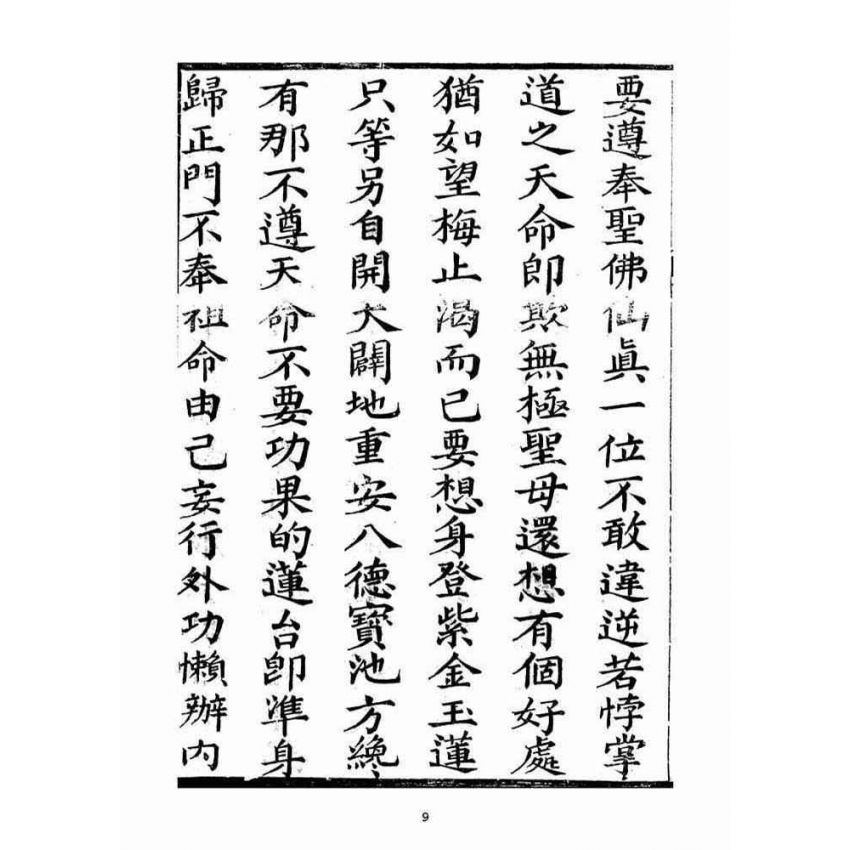 要遵奉聖佛仙眞一位不敢違逆若悖掌
道之天命即欺無極聖母還想有個好處
猶如望梅止渴而已要想身登紫金玉蓮
只等另自開天闢地重安八德寶池方纔
有那不遵天命不要功果的蓮台卽準身
歸正門不奉祖命由己妄行外功懶辦内
9